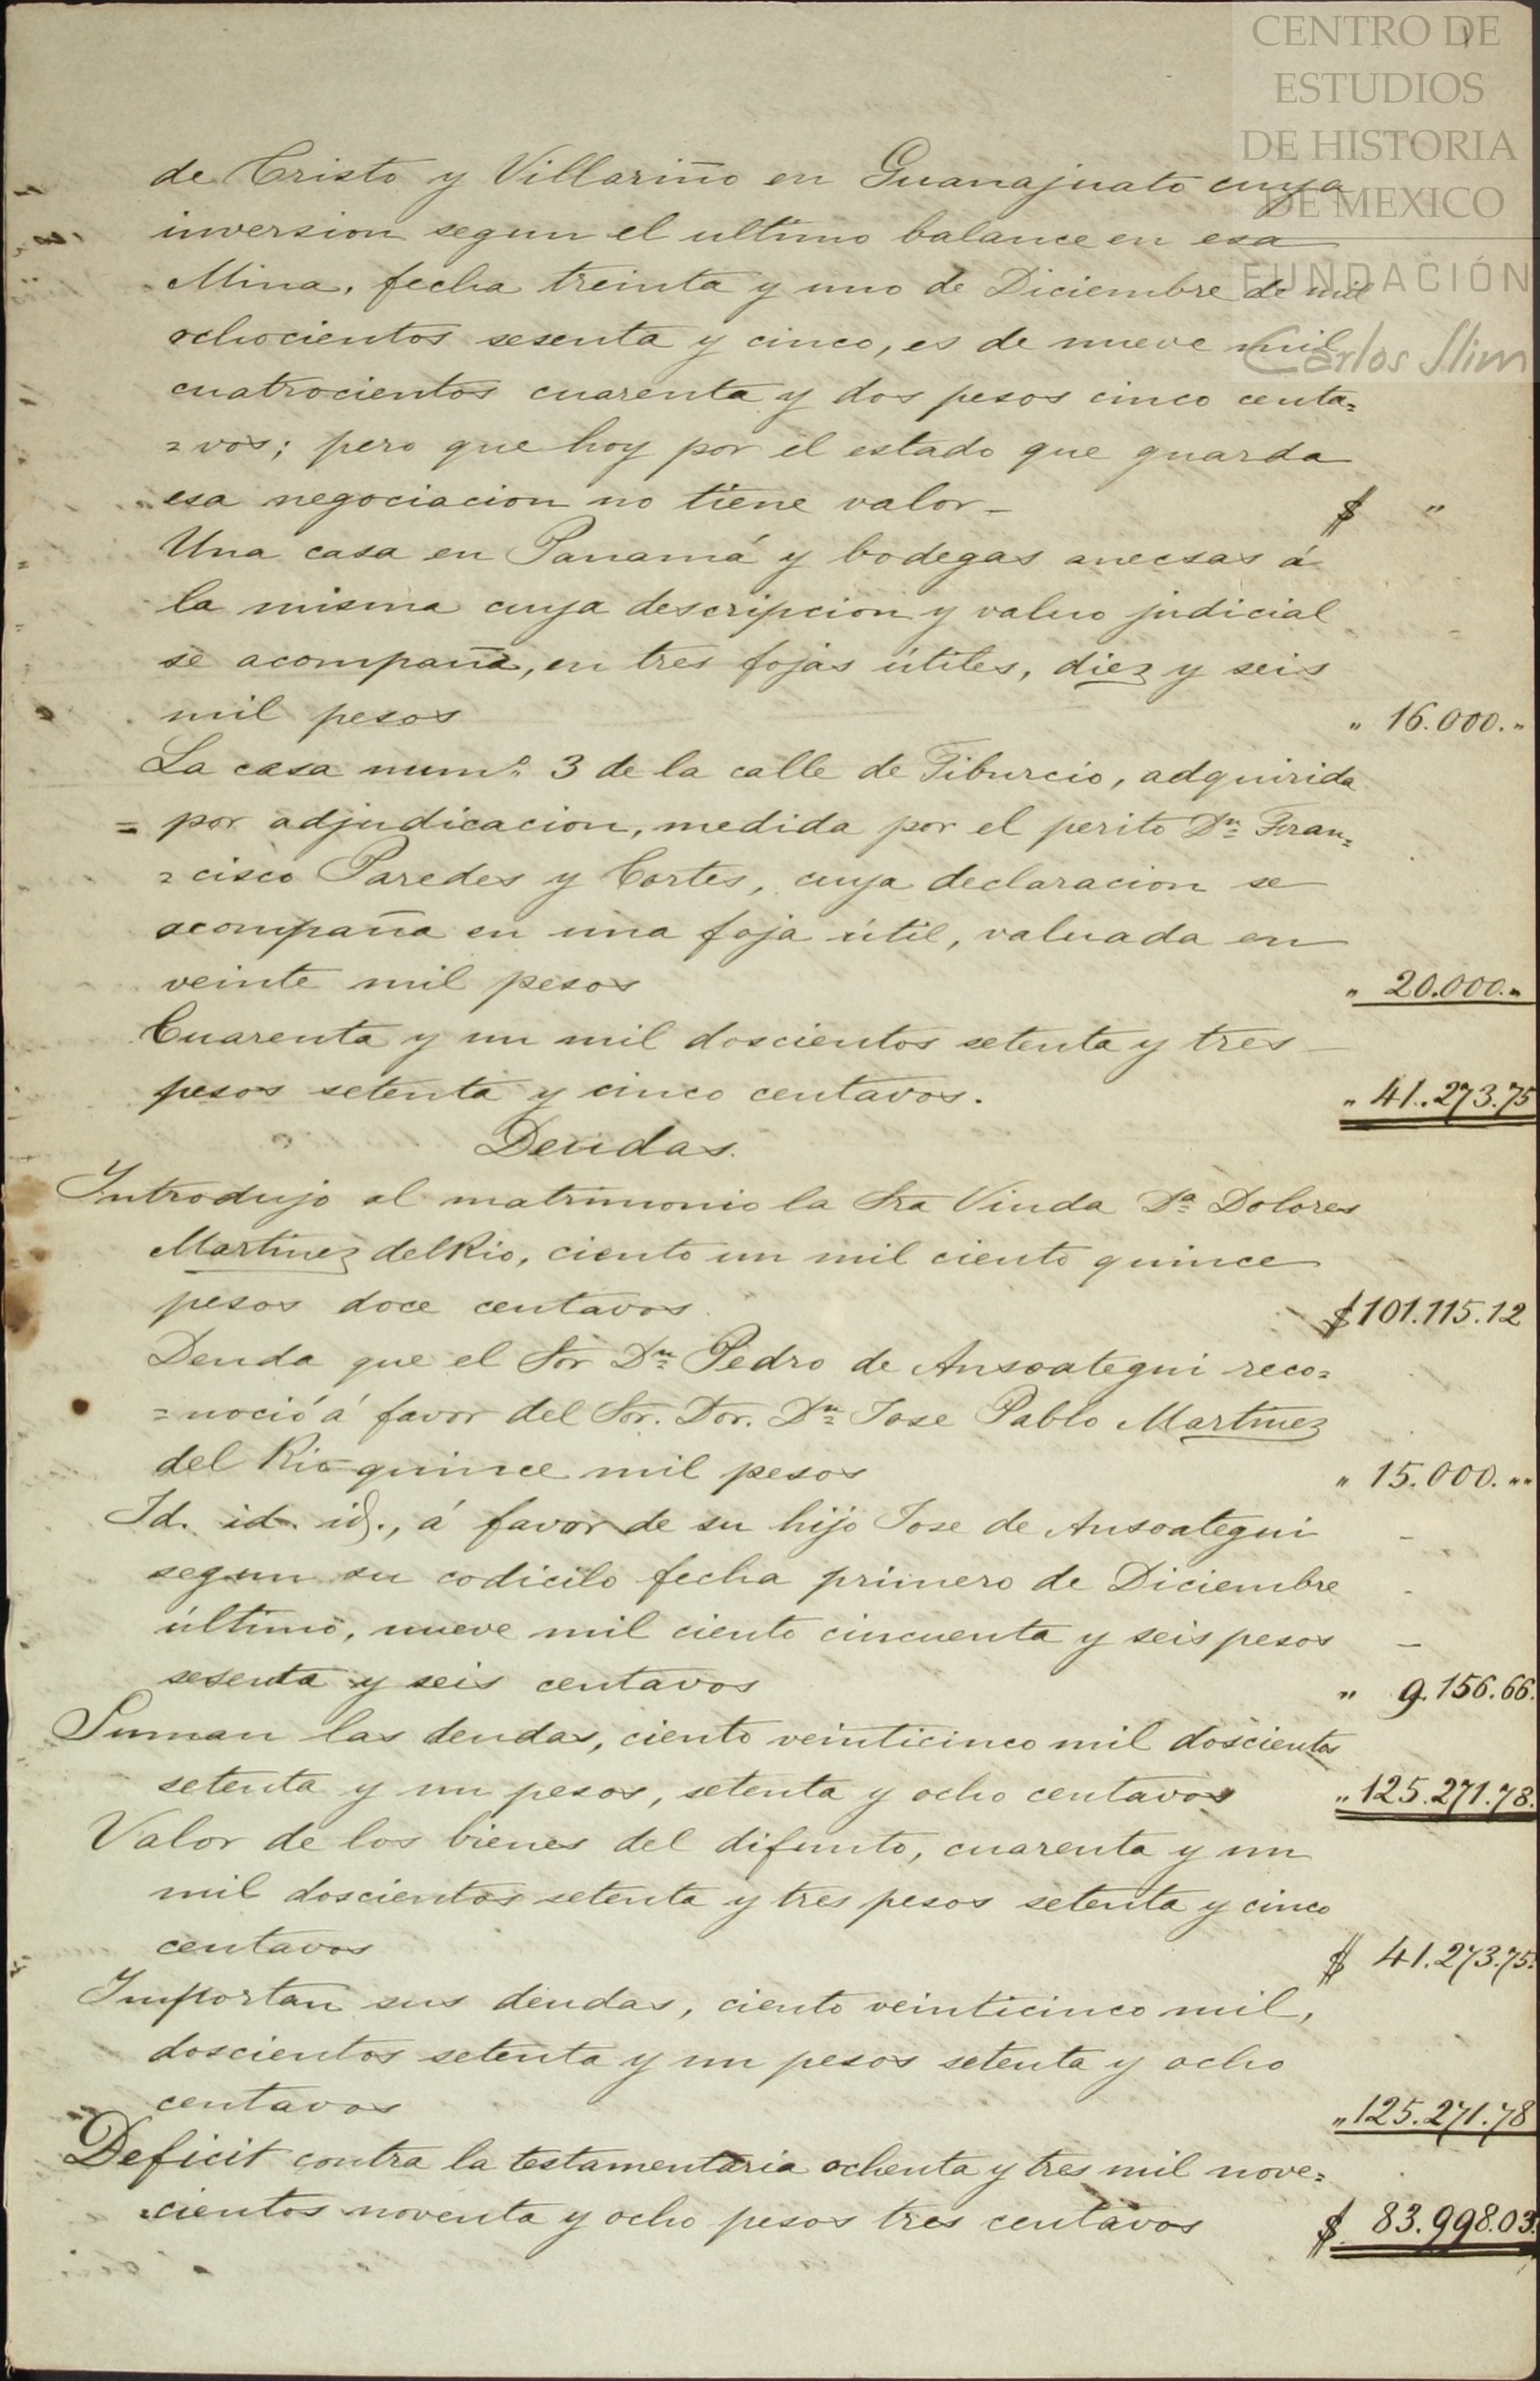 CENTRO DE
ESTUDIOS
DE HISTORIA
DE MEXICO
FUNDACIÓN
Carlos Slim
de Cristo y Villariño en Guanajuato cuya
inversion segun el ultimo balance en esa
Mina, fecha treinta y uno de Diciembre de mil
ochocientos sesenta y cinco, es de nueve mil
cuatrocientos cuarenta y dos pesos cinco centa=
=vos; pero que hoy por el estado que guarda
esa negociacion no tiene valor- $ "
Una casa en Panamá y bodegas anecsas á
la misma cuya descripcion y valuo judicial
se acompaña, en tres fojas útiles, diez y seis
mil pesos " 16.000."
La casa numo. 3 de la calle de Tiburcio, adquirida
= por adjudicacion, medida por el perito Dn. Fran=
=cisco Paredes y Cortes, cuya declaracion se
acompaña en una foja útil, valuada en
veinte mil pesos " 20.000."
Cuarenta y un mil doscientos setenta y tres
pesos setenta y cinco centavos. " 41.273.75
Deudas.
Introdujo al matrimonio la Sra Viuda Da. Dolores
Martinez del Rio, ciento un mil ciento quince
pesos doce centavos $101.115.12
Deuda que el Sor Dn. Pedro de Ansoategui reco=
=noció á favor del Sor. Dor. Dn. Jose Pablo Martinez
del Rio quince mil pesos " 15.000.""
Id. id. id., á favor de su hijo Jose de Ansoategui
segun su codicilo fecha primero de Diciembre
último, nueve mil ciento cincuenta y seis pesos
sesenta y seis centavos " 9.156.66.
Suman las deudas, ciento veinticinco mil doscientos
setenta y un pesos, setenta y ocho centavos " 125.271.78.
Valor de los bienes del difunto, cuarenta y un
mil doscientos setenta y tres pesos setenta y cinco
centavos $ 41.273.75.
Importan sus deudas, ciento veinticinco mil,
doscientos setenta y un pesos setenta y ocho
centavos " 125.271.78
Deficit contra la testamentaria ochenta y tres mil nove=
=cientos noventa y ocho pesos tres centavos $ 83.998.03.